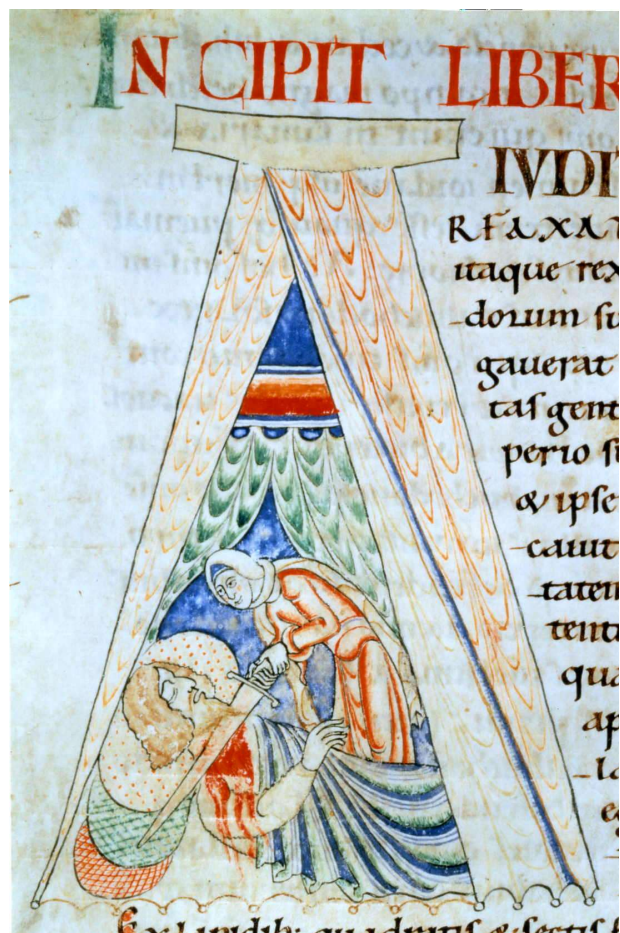 INCIPIT LIBER
IVDIT
RFAXAT
itaque rex
dorum su
gauerat
tas gent
perio su
& ipse
cauit
taten
tenti
qua
ap
la